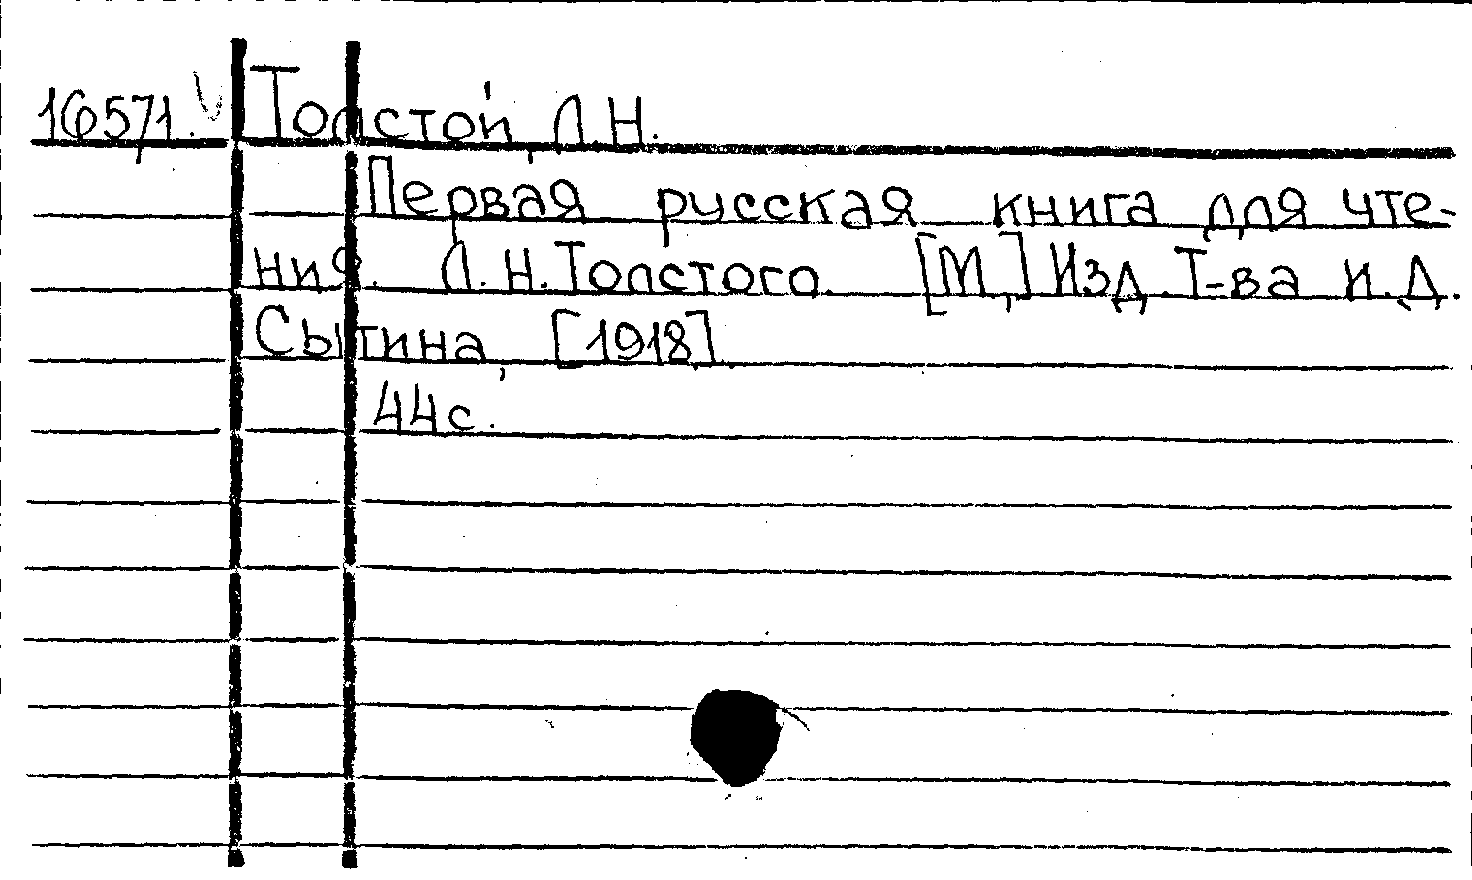 16571. V Толстой, Л.Н.
Первая русская книга для чте-
ния. Л.Н.Толстого. [М.,] Изд. Т-ва И.Д.
Сытина, [1918]
44с.